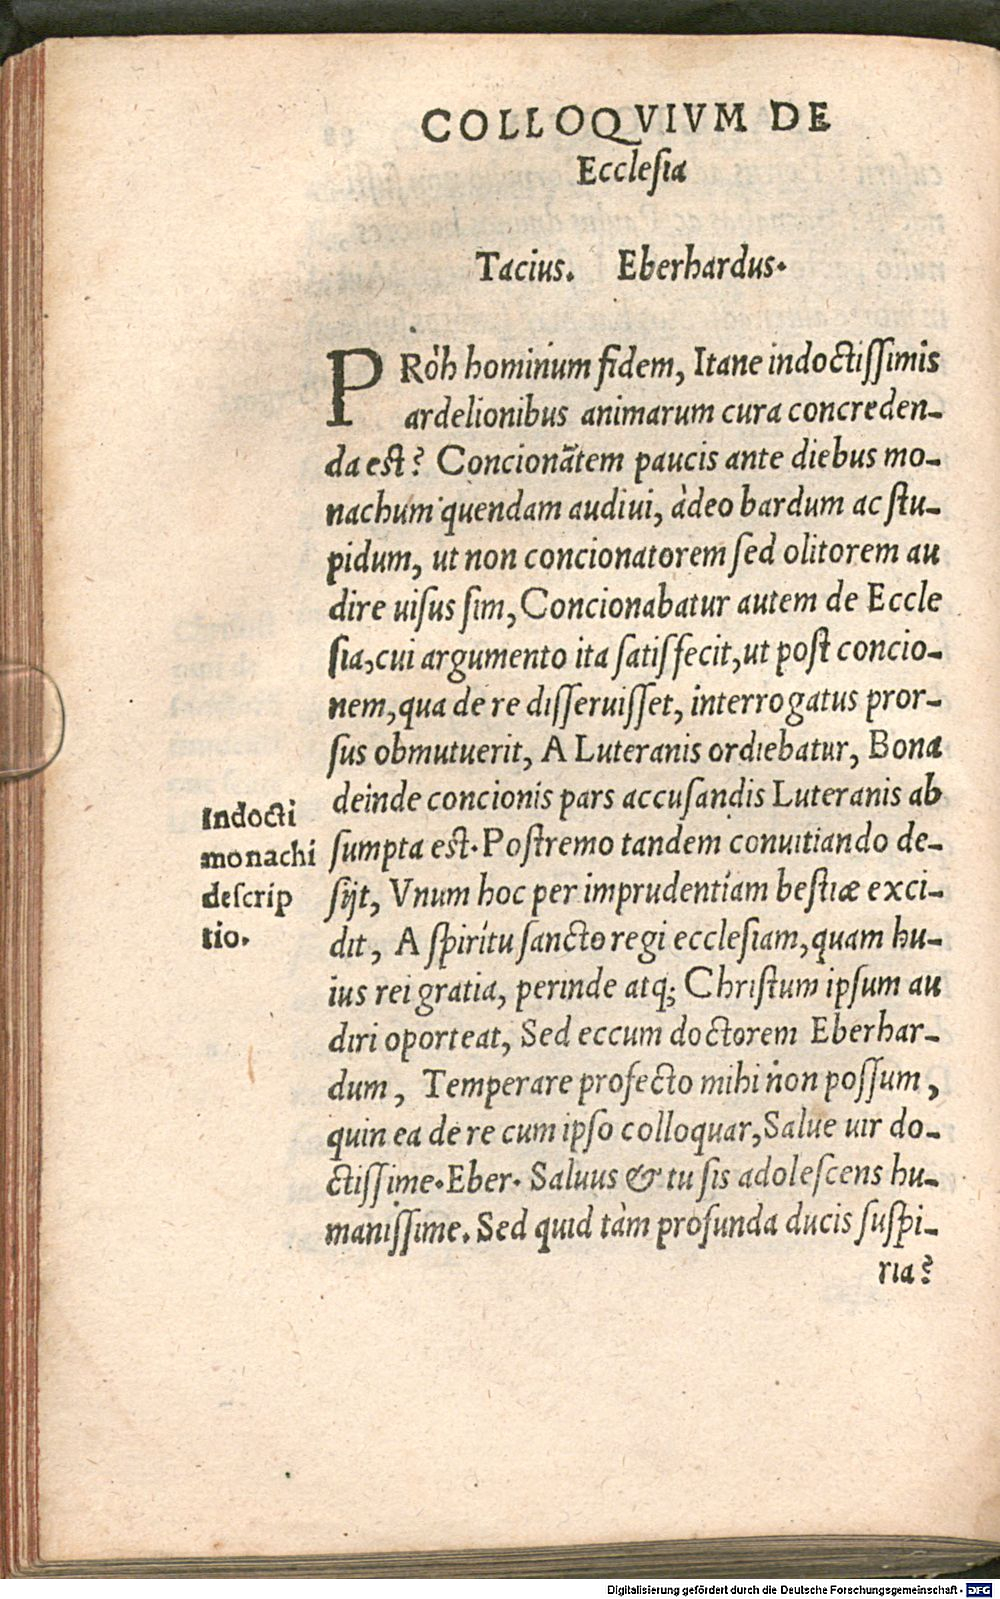 COLLOQVIVM DE
Eccleſia
Tacius. Eberhardus.
PRòh hominum fidem, Itane indoctiſſimis
ardelionibus animarum cura concreden-
da est? Concionātem paucis ante diebus mo-
nachum quendam audiui, àdeo bardum ac ſtu-
pidum, ut non concionatorem ſed olitorem au
dire uiſus ſim, Concionabatur autem de Eccle
ſia, cui argumento ita ſatisfecit, ut poſt concio-
nem, qua de re diſſeruiſſet, interrogatus pror-
ſus obmutuerit, A Luteranis ordiebatur, Bona
deinde concionis pars accuſandis Luteranis ab
Indocti
monachi
deſcrip
tio.
ſumpta eſt. Poſtremo tandem conuitiando de-
ſijt, Vnum hoc per imprudentiam beſtiæ exci-
dit, A ſpiritu ſancto regi eccleſiam, quam hu-
ius rei gratia, perinde atq; Chriſtum ipſum au
diri oporteat, Sed eccum doctorem Eberhar-
dum, Temperare profecto mihi non poſſum,
quin ea de re cum ipſo colloquar, Salue uir do-
ctiſſime. Eber. Saluus & tu ſis adoleſcens hu-
maniſſime. Sed quid tàm profunda ducis ſuſpi-
ria?
Digitalisierung gefördert durch die Deutsche Forschungsgemeinschaft - DFG